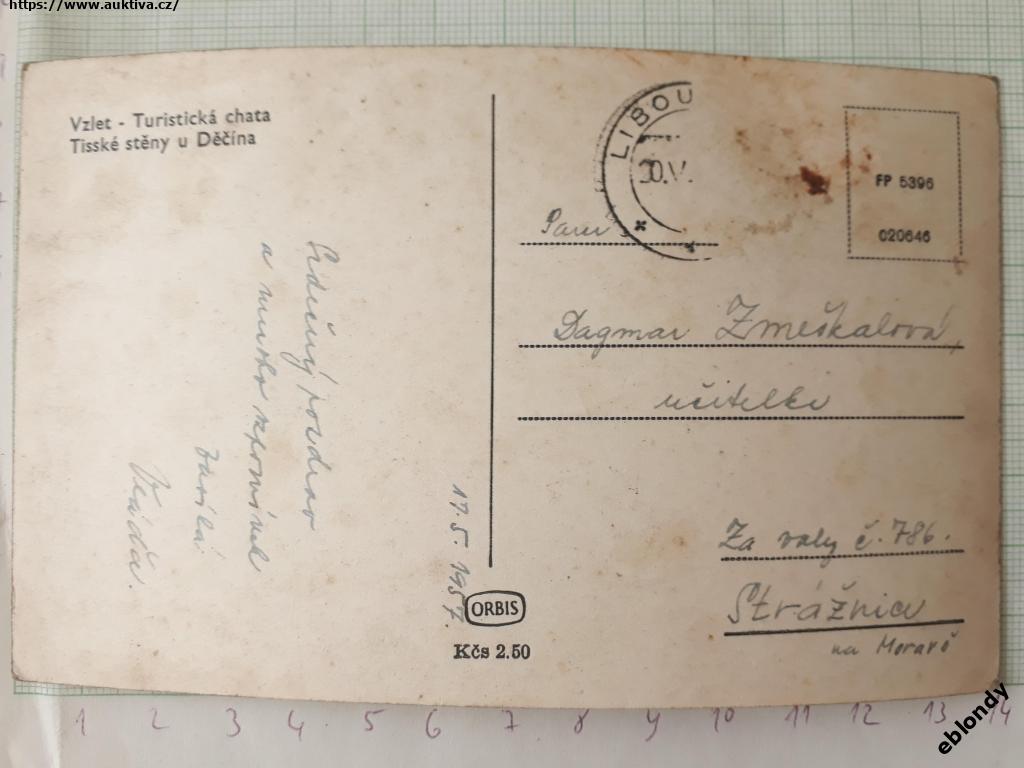 https://www.auktiva.cz/
Vzlet - Turistická chata
Tisské stěny u Děčína
Srdečný pozdrav
a mnoho vzpomínek
Vláďa.
17.5. 1957.
ORBIS
Kčs 2.50
LIBOU
0.V.
FP 5396
020646
Paní
Dagmar Zmeškalová,
učitelka
Za valy č. 786.
Strážnice
na Moravě
1 2 3 4 5 6 7 8 9 10 11 12 13 14
eblondy